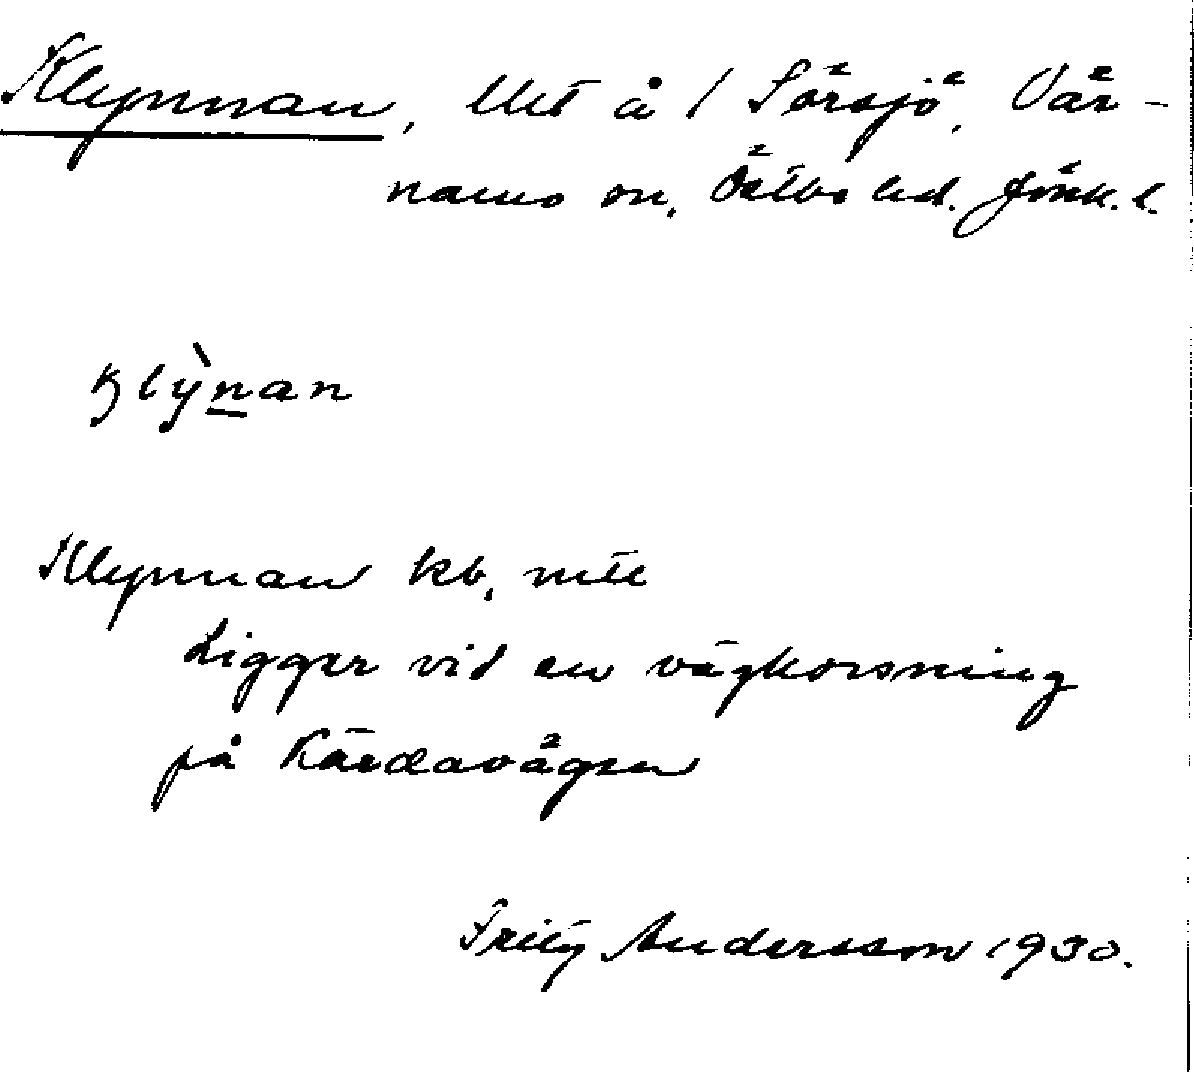 Klynnan, lht å 1 Sörsjö, Vär-
namo sn, Östbo hd. Jönk. l.
klỳn̲an
Klynnan kb, mtl
Ligger vid en vägkorsning
på Kärdavägen
Fritz Andersson 1930.